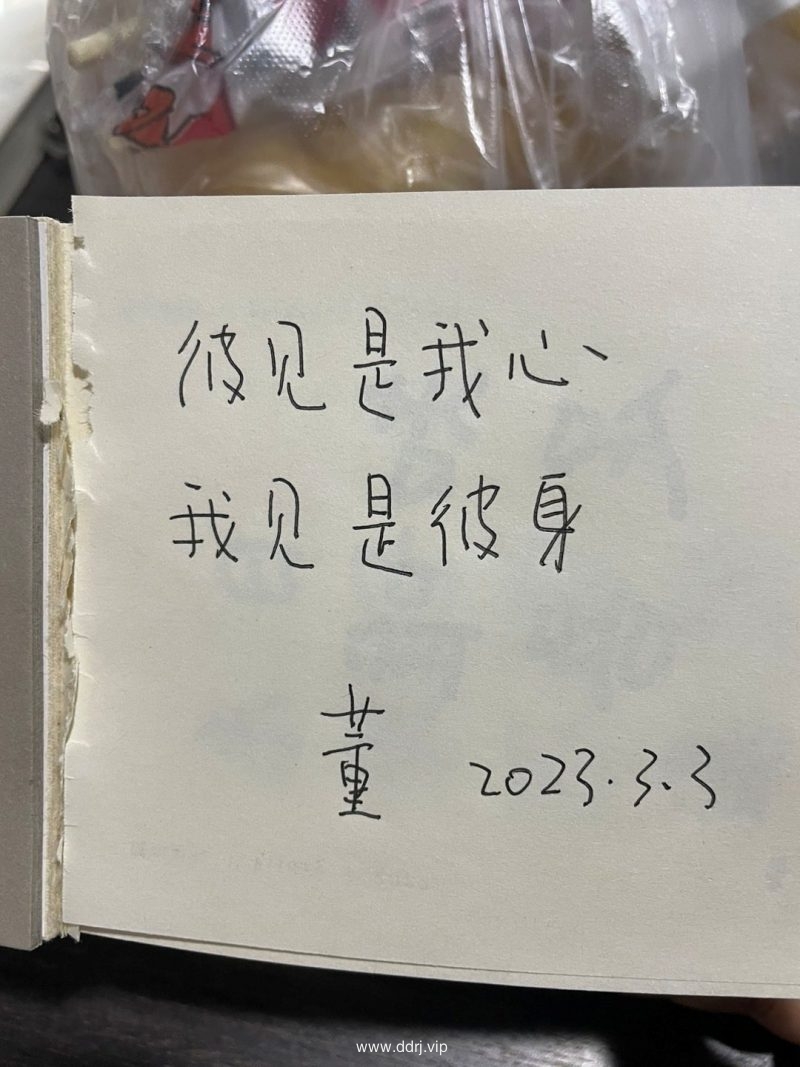 彼见是我心
我见是彼身
董 2023.3.3
www.ddrj.vip